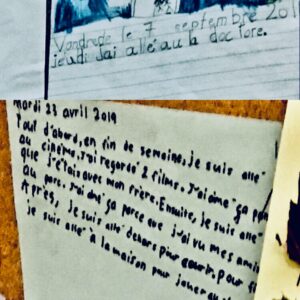 Vandrede le 7 septembre 201
jeudi J'ai allé au la doctore.
mardi 23 avril 2019
Tout d'abord, en fin de semaine, je suis allé
au cinéma, J'ai regardé 2 films. J'ai aimé ça
que j'étais avec mon frère. Ensuite, je suis allé
au parc. J'ai aimé ça parce que j'ai vu mes amis
Après, je suis allé dehors pour
je suis allé à la maison pour jouer